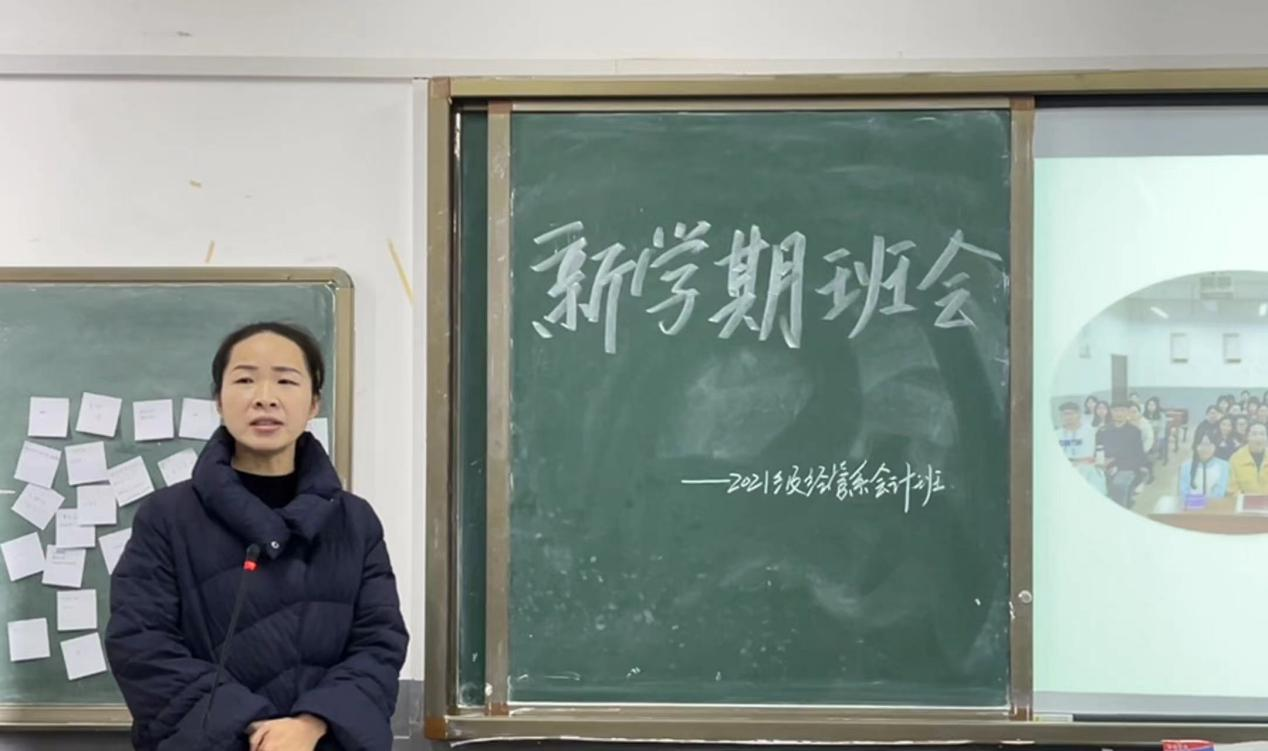 新学期班会
——2021级经管系会计班